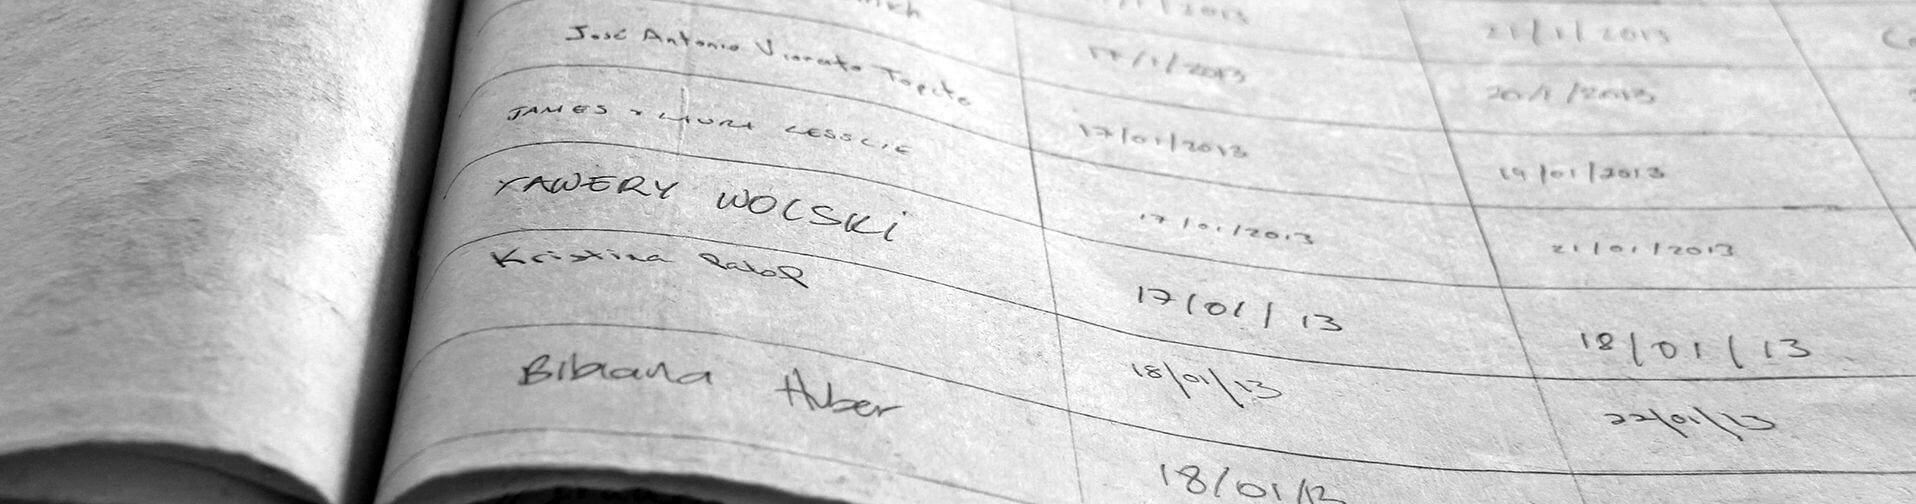 21/1/2013
17/1/2013 20/1/2013
José Antonio Topite 17/01/2013 19/01/2013
JAMES + LAURA LESSLIE 17/01/2013 21/01/2013
YAWERY WOLSKI 17/01/13 18/01/13
Kristina 18/01/13 22/01/13
Bibiana Huber 18/01/13